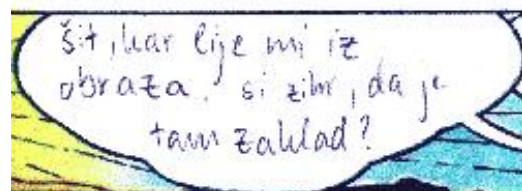 šit, kar lije mi iz
obraza. si zihr, da je
tam zaklad?